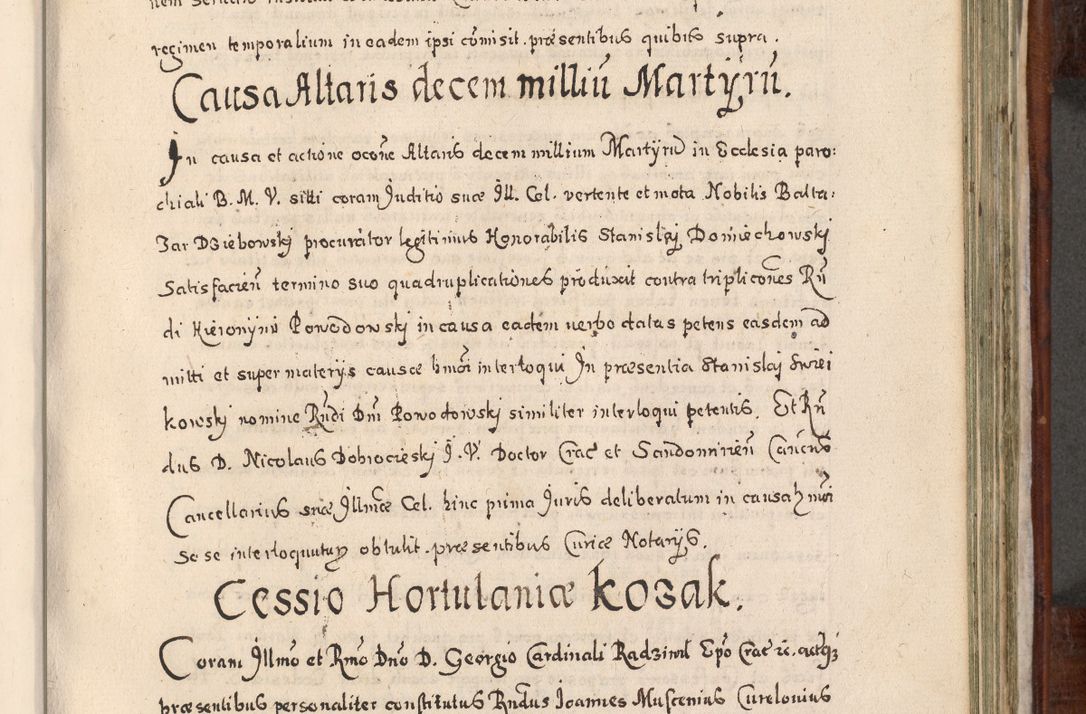 regimen temporalium in eadem ipsi cōmisit. præsentibus quibus supra.
Causa Altaris decem milliū Martÿrū.
In causa et actione ocōne Altaris decem millium Martÿrū in Ecclesia paro:
chiali B. M. V. sitti coram Juditio suæ Ill. Cel. vertente et mota Nobilis Balta:
zar Dziebowskj procurator legitimus Honorabilis Stanislaj Domiechowskj
Satisfacień termino suo quadruplicationes produxit contra triplicōnes Rn̄
di Hieronÿmi Powodowskj in causa eadem verbo datas petens easdem ad
mitti et super materijs causæ hmōi interloqui In præsentia Stanislaj Swiei
kowskj nomine Rn̄di Dn̄i Powodowskj similiter interloqui petentis. Et Rn̄
dus D. Nicolaus Dobrocieskj J. V. Doctor Crac̄ et Sandomirień Canc̄us
Cancellarius suæ Illmæ Cel. hinc prima Juris deliberatum in causa hmōi
se se interloquuturū obtulit. præsentibus Curiæ Notarijs.
Cessio Hortulaniæ Kozak.
Coram Illmo et Rmo Dno D. Georgio Cardinali Radziwil Epō Crac̄ &c. actisq3
præsentibus personaliter constitutus Rn̄dus Joannes Muscenius Curelovius